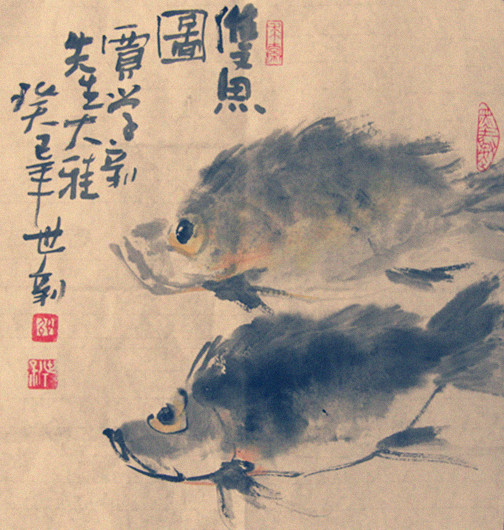 雙魚
圖
賈学新
先生大雅
癸巳年 世新